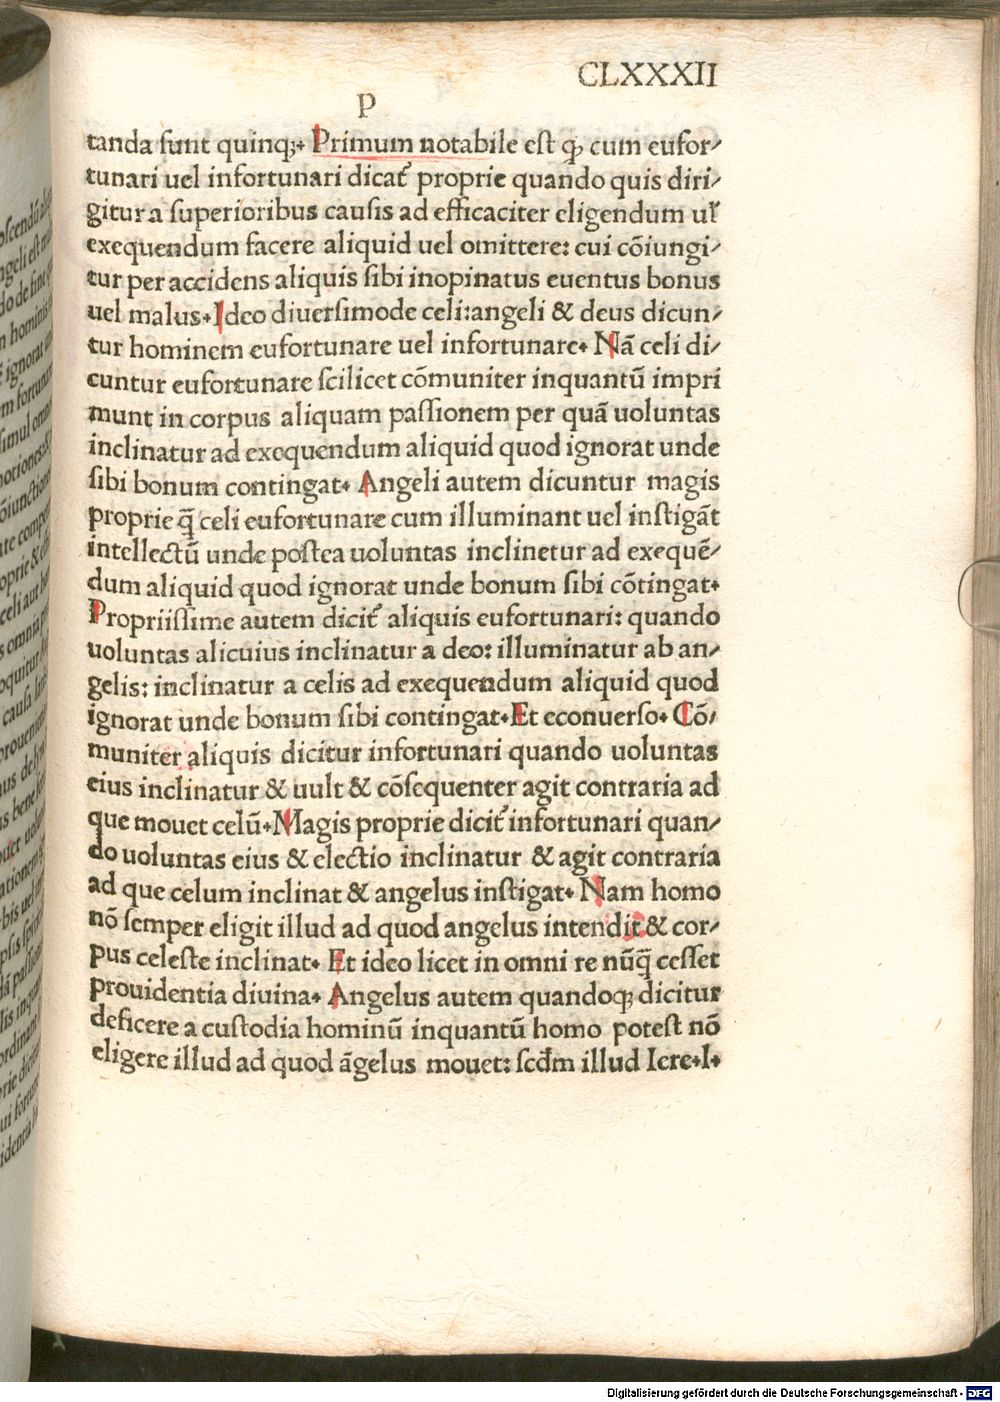 CLXXXII
P
tanda sunt quinq;. Primum notabile est ꝙ cum eufor/
tunari uel infortunari dicat᷑ proprie quando quis diri/
gitur a superioribus causis ad efficaciter eligendum ul̉
exequendum facere aliquid uel omittere: cui cōiungi/
tur per accidens aliquis sibi inopinatus euentus bonus
uel malus. Ideo diuersimode celi: angeli & deus dicun/
tur hominem eufortunare uel infortunare. Nā celi di/
cuntur eufortunare scilicet cōmuniter inquantū impri
munt in corpus aliquam passionem per quā uoluntas
inclinatur ad exequendum aliquid quod ignorat unde
sibi bonum contingat. Angeli autem dicuntur magis
proprie q̄ celi eufortunare cum illuminant uel instigāt
intellectū unde postea uoluntas inclinetur ad exequē/
dum aliquid quod ignorat unde bonum sibi cōtingat.
Propriissime autem dicit᷑ aliquis eufortunari: quando
uoluntas alicuius inclinatur a deo: illuminatur ab an/
gelis: inclinatur a celis ad exequendum aliquid quod
ignorat unde bonum sibi contingat. Et econuerso. Cō/
muniter aliquis dicitur infortunari quando uoluntas
eius inclinatur & uult & cōsequenter agit contraria ad
que mouet celū. Magis proprie dicit᷑ infortunari quan/
do uoluntas eius & electio inclinatur & agit contraria
ad que celum inclinat & angelus instigat. Nam homo
nō semper eligit illud ad quod angelus intendit & cor/
pus celeste inclinat. Et ideo licet in omni re nūq̄ cesset
prouidentia diuina. Angelus autem quandoq; dicitur
deficere a custodia hominū inquantū homo potest nō
eligere illud ad quod āgelus mouet: scd̄m illud Iere. I.
Digitalisierung gefördert durch die Deutsche Forschungsgemeinschaft - DFG